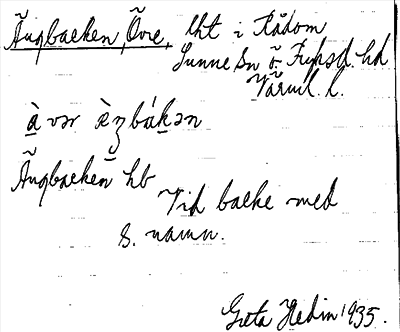 Ängbacken, Övre, lht i Rådom
Sunne sn ö. Fryksd. hd
Värml. l.
à vər ὲŋbák̠ən
Ängbacken hb
Vid backe med
s. namn.
Greta Hedin 1935.